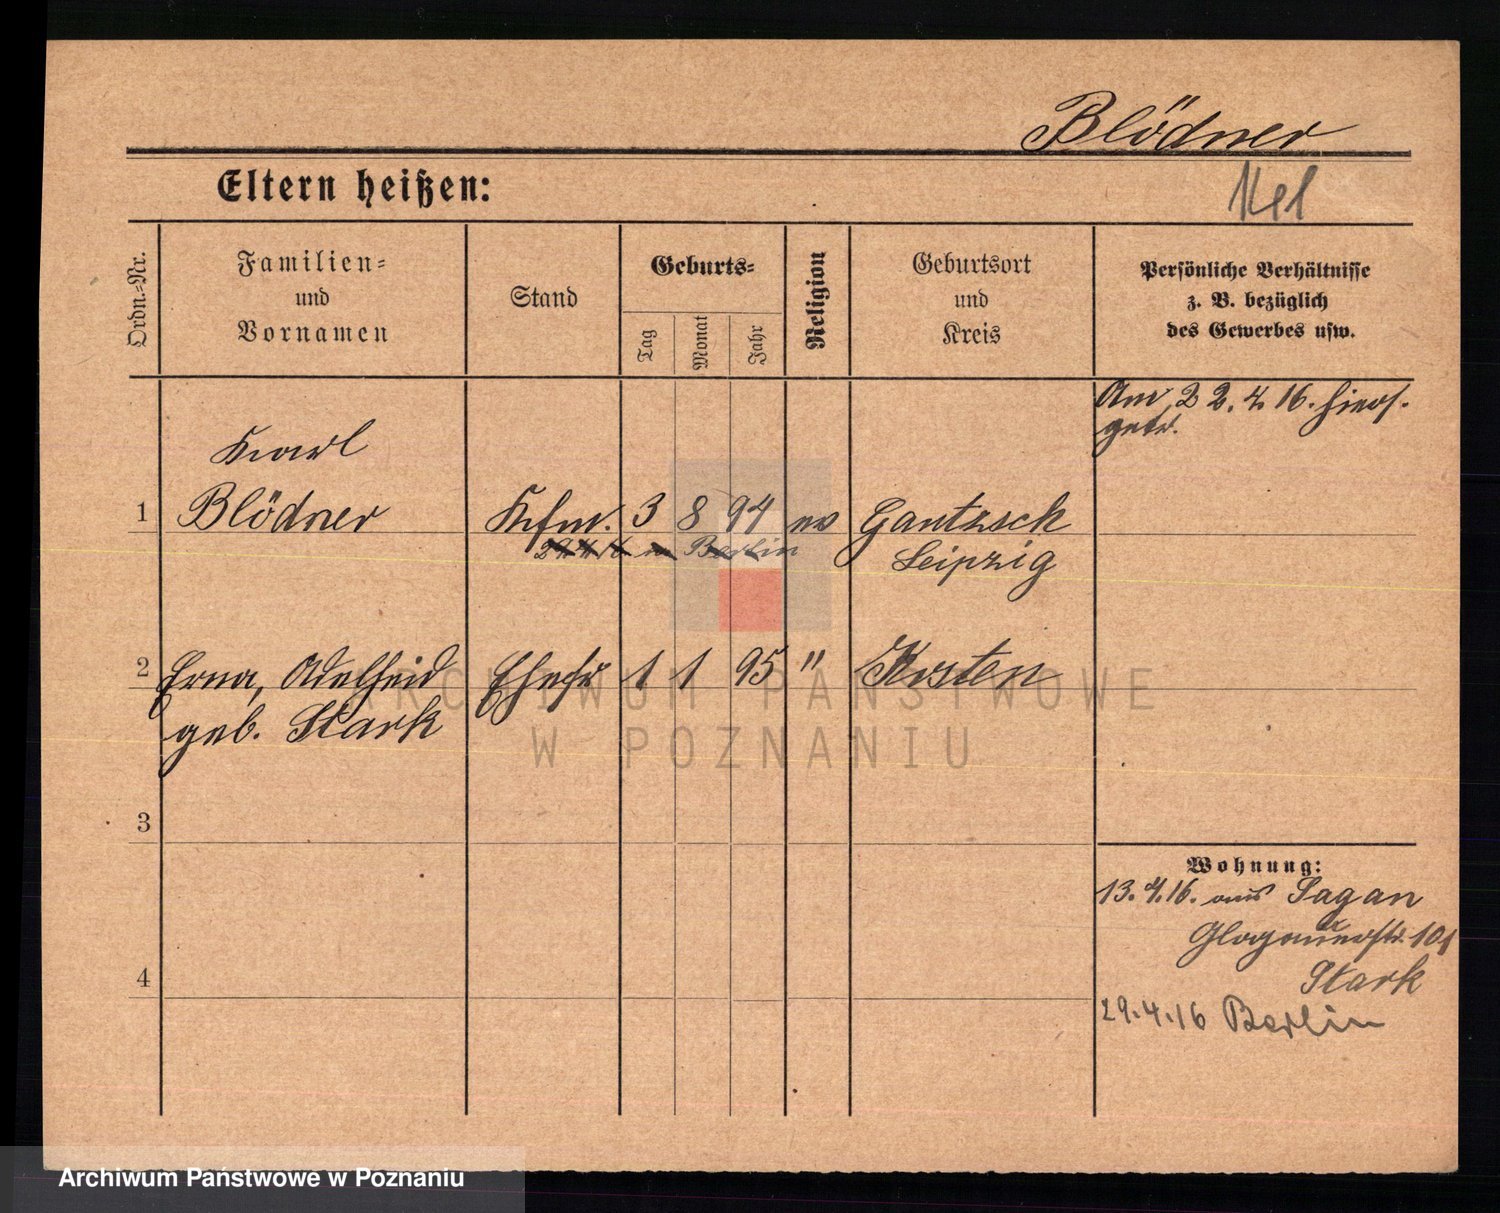 Blödner
Eltern heißen:
Ordn.-Nr.
Familien-
und
Vornamen
Stand
Geburts-
Tag
Monat
Jahr
Religion
Geburtsort
und
Kreis
Persönliche Verhältnisse
z. B. bezüglich
des Gewerbes usw.
Am 22.4.16. hiers.
getr.
Karl
1 Blödner Kfm. 3 8 94 ev Gautzsch
29.4.16 in Berlin Leipzig
2 Erna, Adelheid Ehefr 1 1 95 " Kosten
geb. Stark
3
4
Wohnung:
13.4.16. aus Sagan
Glogauerstr. 101
Stark
29.4.16 Berlin
ARCHIWUM PAŃSTWOWE
W POZNANIU
Archiwum Państwowe w Poznaniu